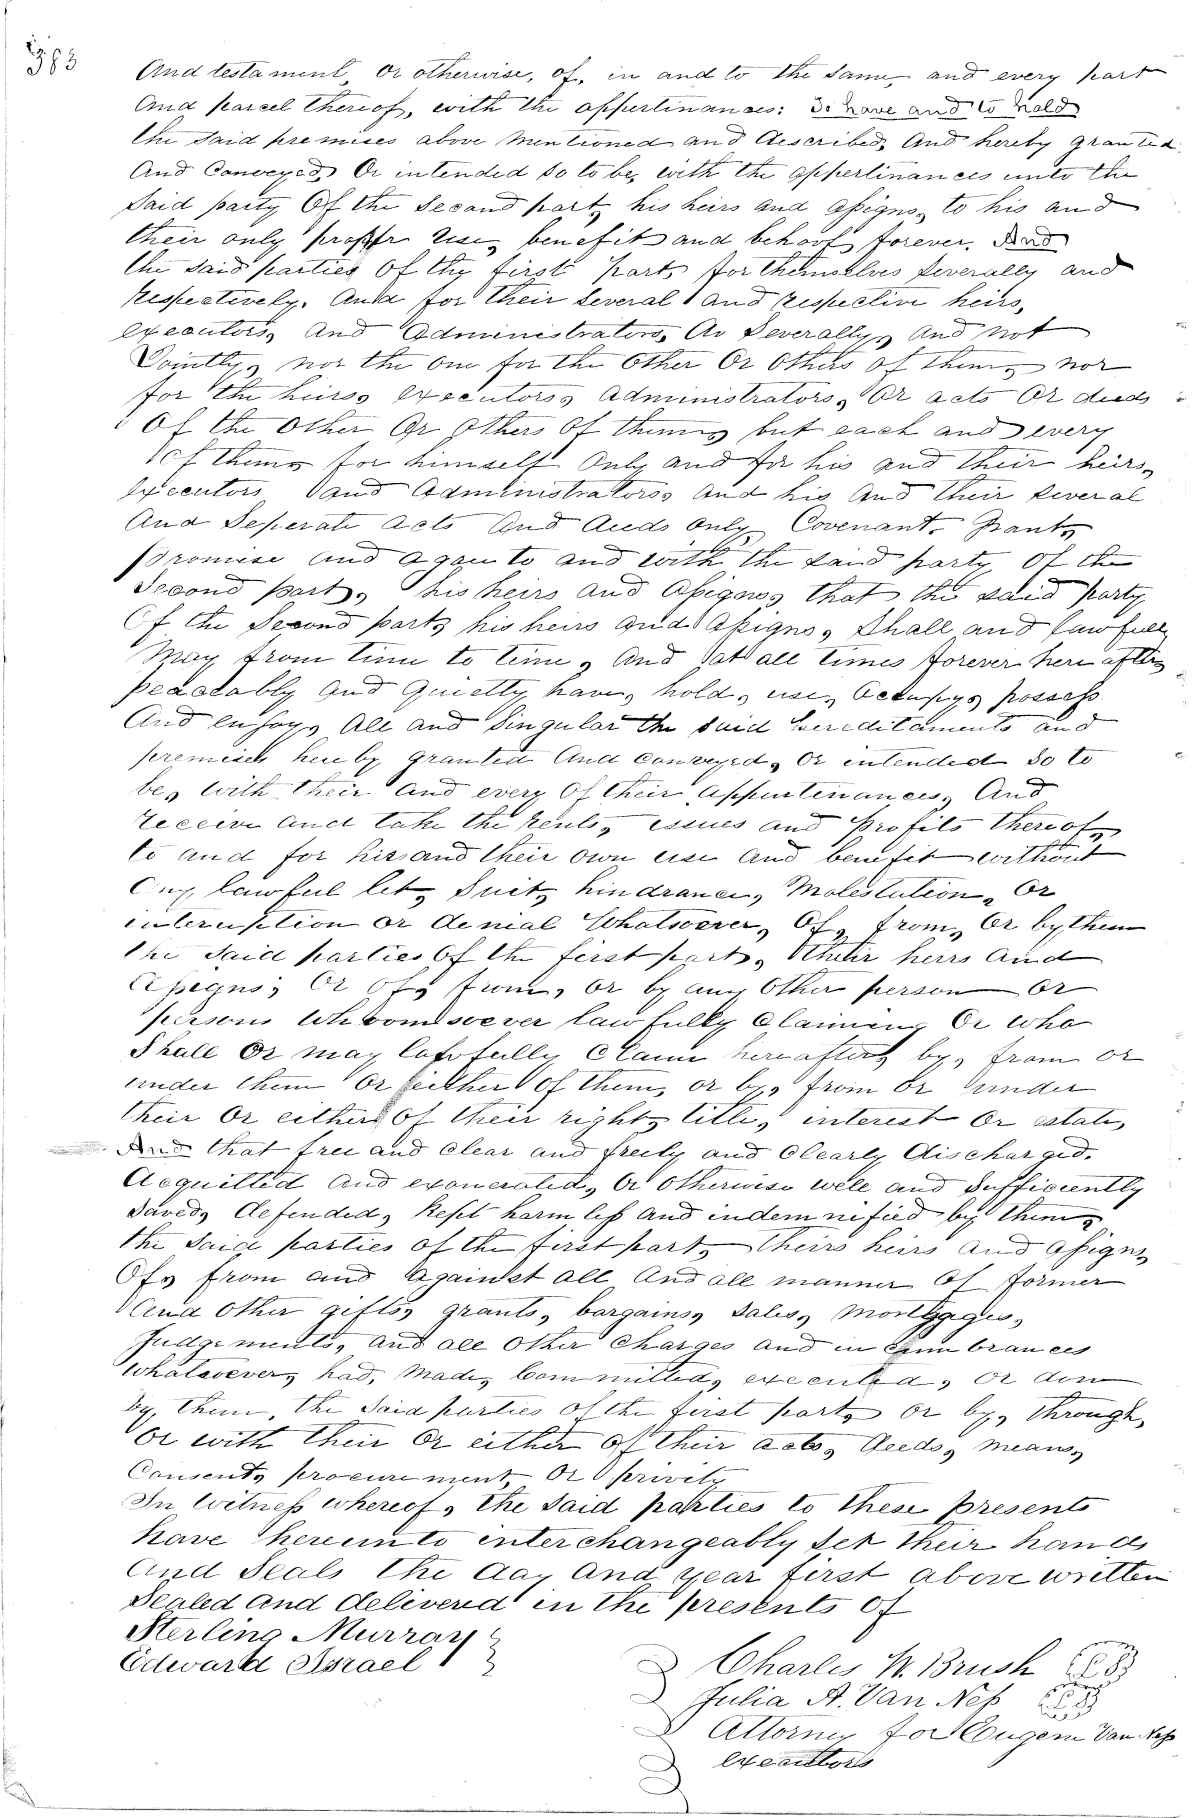 383
And testament, or otherwise, of, in and to the same, and every part
And parcel thereof, with the appertinances: To have and to hold
the said premises above mentioned and described, And hereby granted
And Conveyed, Or intended so to be, with the appertinances unto the
Said party Of the Second part, his heirs and assigns, to his and
their only proper use, benefit and behoof forever. And
the said parties Of the first part, for themselves Severally and
respectively. And for their Several and respective heirs,
executors, And Administrators, Do Severally, And not
Jointly, nor the one for the Other Or Others of them, nor
for the heirs, executors, Administrators, Or acts Or deeds
Of the Other Or Others Of them, but each and every
Of them, for himself Only and for his and their heirs,
executors and Administrators, And his And their several
And Seperate Acts And deeds only, Covenant, Grant,
promise and agree to and with the said party Of the
Second part, his heirs and Assigns, that the said party
Of the Second part, his heirs and Assigns, Shall and lawfully
May from time to time, And at all times forever hereafter,
peaceably And Quietly have, hold, use, Occupy, possess
And enjoy, All and Singular the said hereditaments and
premises hereby granted And conveyed, Or intended So to
be, with their And every Of their Appurtenances, And
receive and take the rents, issues and profits thereof,
to and for his and their own use And benefit without
Any lawful let, Suit, hindrance, Molestation, Or
interruption or denial Whatsoever, Of, from, Or by them
the said parties Of the first part, their heirs And
Assigns; Or Of, from, or by any Other person or
persons Whomsoever lawfully Claiming Or who
Shall Or may lawfully Claim hereafter, by, from or
under them Or either Of them, or by, from Or under
their Or either Of their right, title, interest Or estate,
And that free and clear and freely and Clearly discharged.
Acquitted And exonerated, Or Otherwise well and Sufficiently
Saved, defended, kept harmless and indemnified by them,
the Said parties of the first part, theirs heirs And Assigns
Of, from and Against all And all manner Of former
And Other gifts, grants, bargains, Sales, Mortgages,
Judgements, and all Other Charges and incumbrances
Whatsoever, had, Made, Committed, executed, or done
by them, the Said parties of the first part, or by, through,
Or with their Or either of their acts, deeds, means,
Consent, procurement, Or privity
In Witness whereof, the Said parties to these presents
have hereunto interchangeably Set their hands
And Seals the day And year first above written
Sealed and delivered in the presents Of
Sterling Murray
Edward Israel
Charles W. Brush LS
Julia A. Van Ness LS
Attorney for Eugene Van Ness
executors